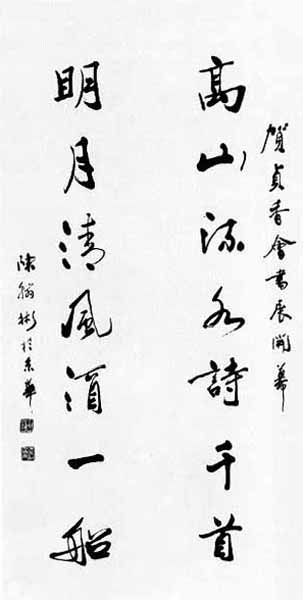 賀貞香會書展開幕
高山流水詩千首
明月清風酒一船
陳翰彬於京華